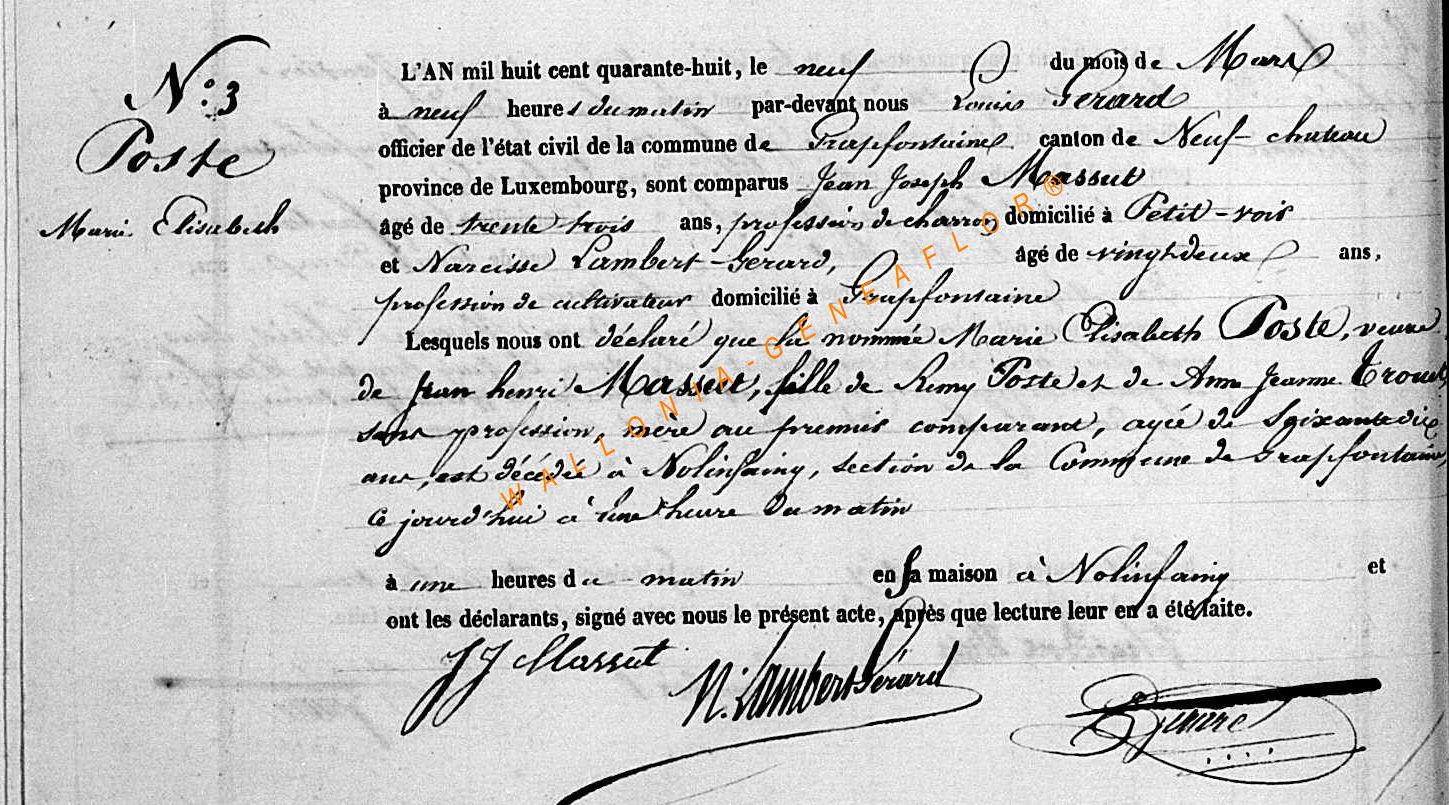 N.° 3
Poste
Marie Elisabeth
L'AN mil huit cent quarante-huit, le neuf du mois de Mars
à neuf heures du matin par-devant nous Louis Gerard
officier de l'état civil de la commune de Grapfontaine canton de Neuf-chateau
province de Luxembourg, sont comparus Jean Joseph Massut
âgé de trente trois ans, profession de charron domicilié à Petit-voir
et Narcisse Lambert-Gerard, âgé de vingt deux ans,
profession de cultivateur domicilié à Grapfontaine
Lesquels nous ont déclaré que la nommée Marie Elisabeth Poste, veuve
de Jean henri Massut, fille de Remy Poste et de Anne Jeanne
sans profession, mère au premier comparant, agée de Soixante dix
ans, est décédée à Nolinfaing, section de la Commune de Grapfontaine,
ce jourd'hui à une heure du matin
à une heures du matin en sa maison à Nolinfaing et
ont les déclarants, signé avec nous le présent acte, après que lecture leur en a été faite.
JJ Massut N. Lambert Gérard
WALLONIA-GENEAFLOR®